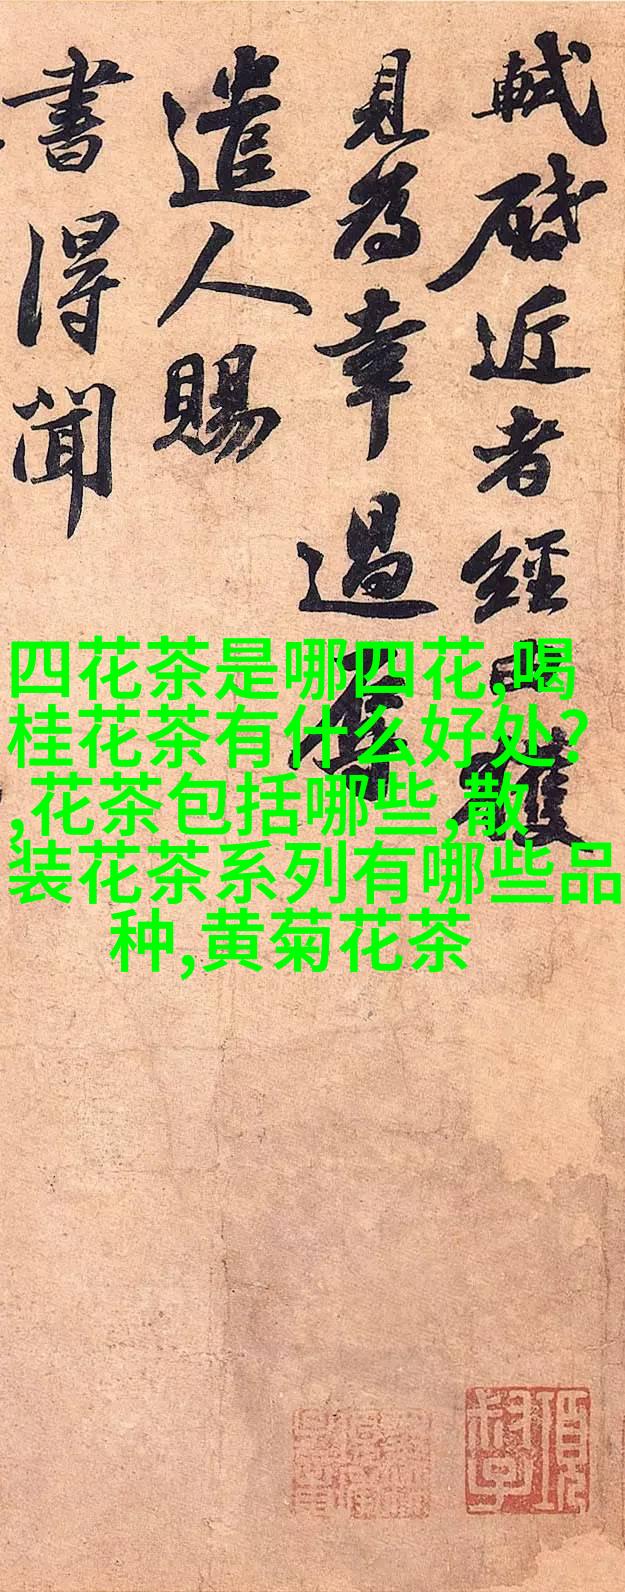 軾啟近者經由獲
見為幸過辱
遣人賜
書得聞
四花茶是哪四花,喝
桂花茶有什么好处?
,花茶包括哪些,散
装花茶系列有哪些品
种,黄菊花茶